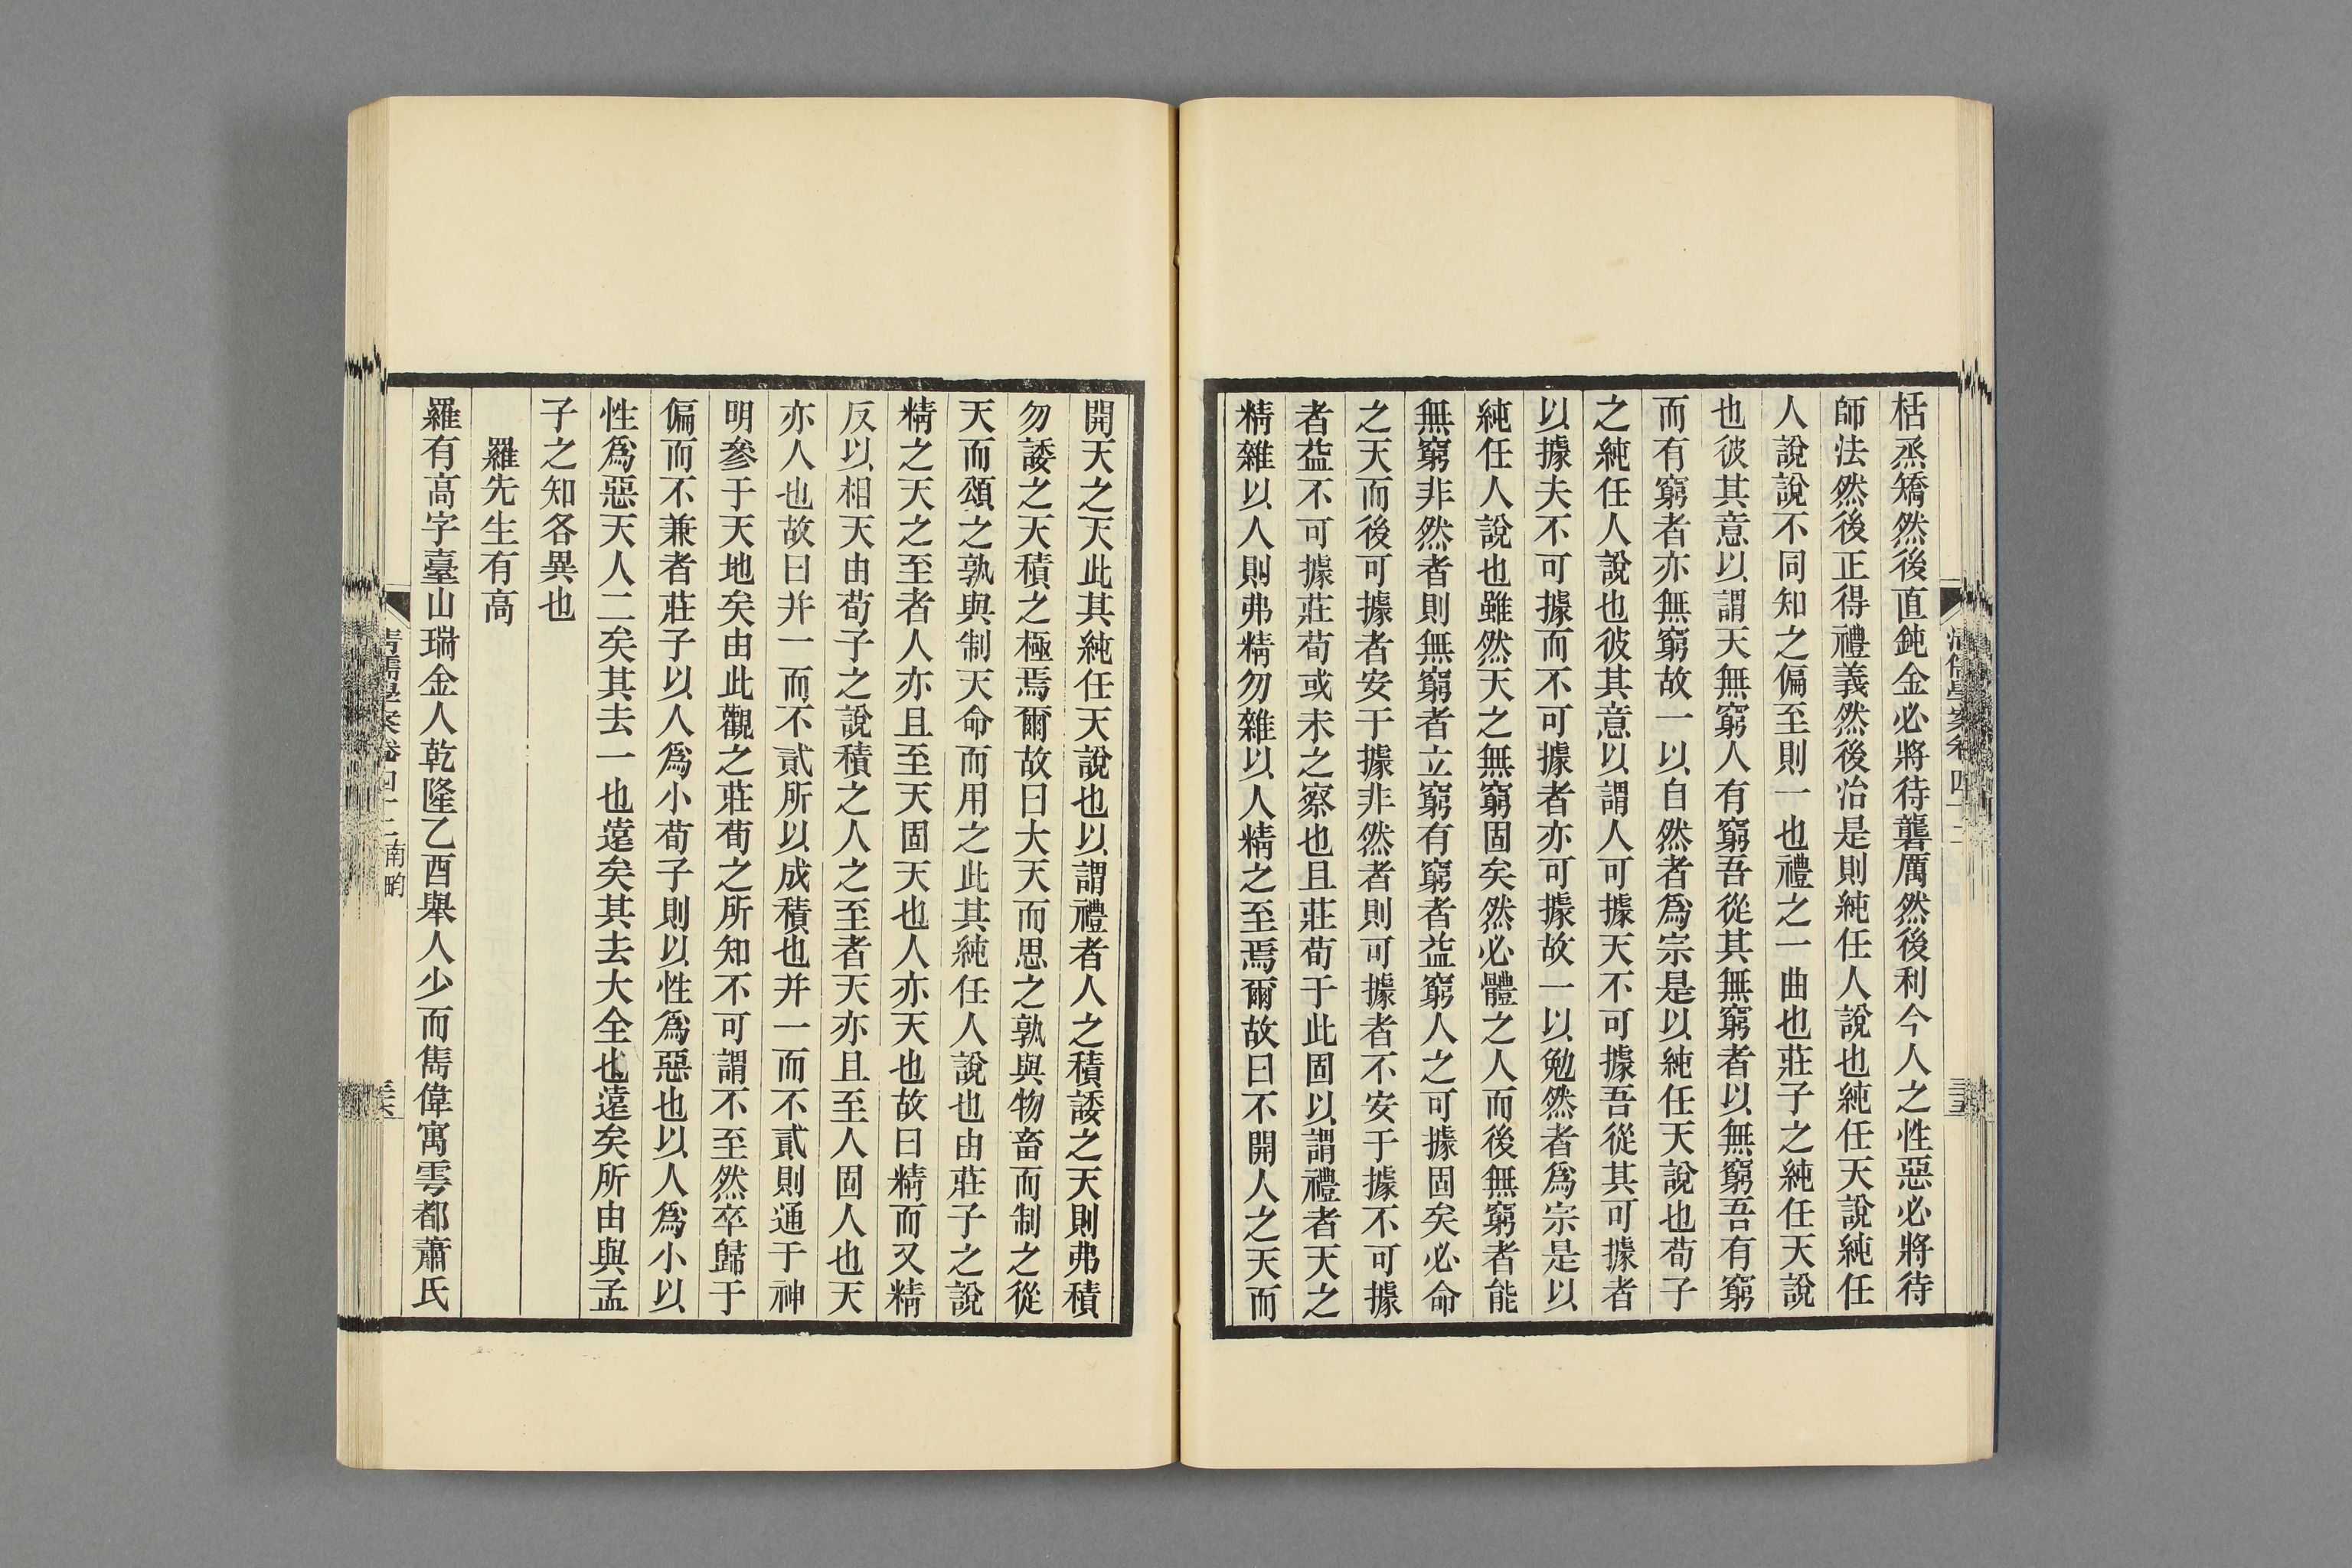 枯烝矯然後直鈍金必將待礱厲然後利今人之性惡必將待
師法然後正得禮義然後治是則純任人說也純任天說純任
人說說不同知之偏至則一也禮之一曲也莊子之純任天說
也彼其意以謂天無窮人有窮吾從其無窮者以無窮吾有窮
而有窮者亦無窮故一以自然者爲宗是以純任天說也荀子
之純任人說也彼其意以謂人可據天不可據吾從其可據者
以據夫不可據而不可據者亦可據故一以勉然者爲宗是以
純任人說也雖然天之無窮固矣然必體之人而後無窮者能
無窮非然者則無窮者立窮有窮者益窮人之可據固矣必命
之天而後可據者安于據非然者則可據者不安于據不可據
者益不可據莊荀或未之察也且莊荀于此固以謂禮者天之
精雜以人則弗精勿雜以人精之至焉爾故曰不開人之天而
開天之天此其純任天說也以謂禮者人之積諉之天則弗積
勿諉之天積之極焉爾故曰大天而思之孰與物畜而制之從
天而頌之孰與制天命而用之此其純任人說也由莊子之說
精之天之至者人亦且至天固天也人亦天也故曰精而又精
反以相天由荀子之說積之人之至者天亦且至人固人也天
亦人也故曰并一而不貳所以成積也并一而不貳則通于神
明參于天地矣由此觀之莊荀之所知不可謂不至然卒歸于
偏而不兼者莊子以人爲小荀子則以性爲惡也以人爲小以
性爲惡天人二矣其去一也遠矣其去大全也遠矣所由與孟
子之知各異也
羅先生有高
羅有高字臺山瑞金人乾隆乙酉舉人少而雋偉寓雩都蕭氏
清儒學案卷四十二南畇
三六